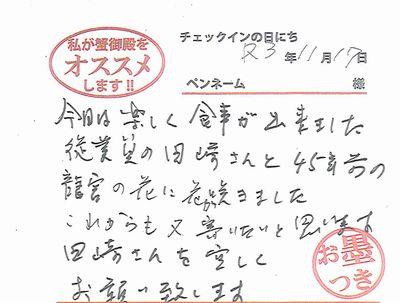 私が蟹御殿を
オススメ
します!!
チェックインの日にち
R3年11月17日
ペンネーム 様
今日は楽しく食事が出来ました
従業員の田崎さんと45年前の
龍宮の花に花咲きました
これからも又寄いたいと思います
田崎さんを宜しく
お願い致します
お墨
つき